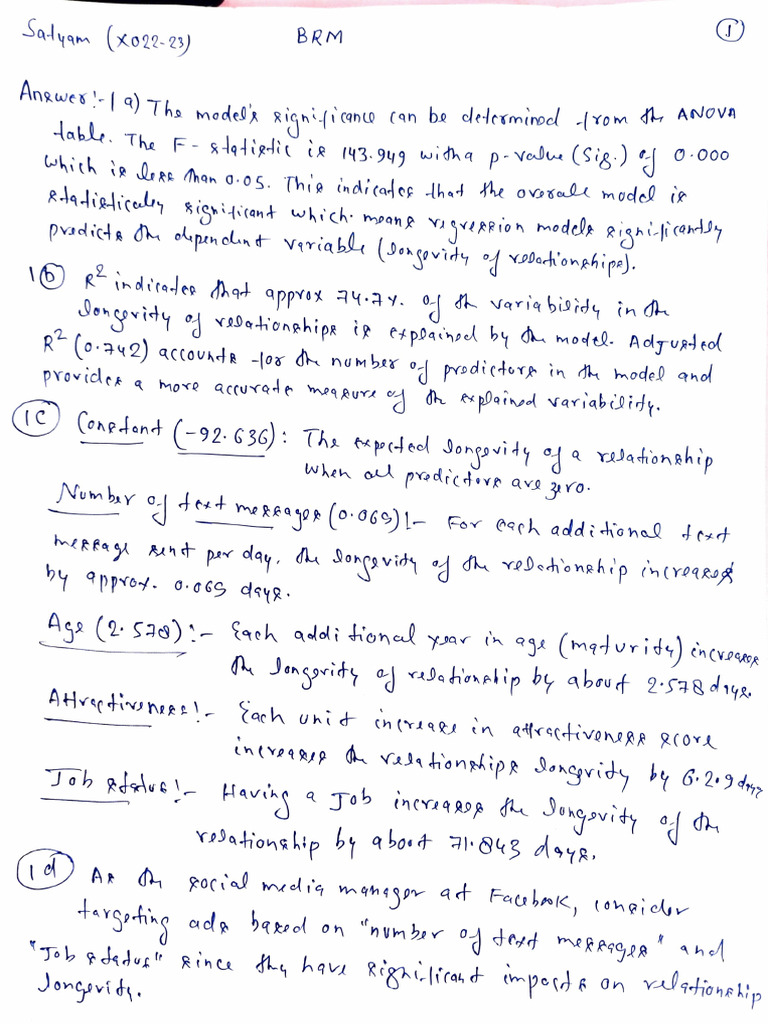 Satyam (X022-23) BRM 1
Answer:-1 a) The model's significance can be determined from the ANOVA
table. The F-statistic is 143.949 with a p-value (Sig.) of 0.000
which is less than 0.05. This indicates that the overall model is
statistically significant which means regression models significantly
predicts the dependent variable (longevity of relationships).
1 b R² indicates that approx 74.7%. of the variability in the
longevity of relationships is explained by the model. Adjusted
R² (0.742) accounts for the number of predictors in the model and
provides a more accurate measure of the explained variability.
1C Constant (-92.636): The expected longevity of a relationship
when all predictors are zero.
Number of text messages (0.065):- For each additional text
message sent per day, the longevity of the relationship increases
by approx. 0.065 days.
Age (2.578):- Each additional year in age (maturity) increases
the longevity of relationship by about 2.578 days.
Attractiveness:- Each unit increase in attractiveness score
increases the relationships longevity by 6.209 days
Job status:- Having a Job increases the longevity of the
relationship by about 71.843 days.
1d As the social media manager at Facebook, consider
targeting ads based on "number of text messages" and
"Job status" since they have significant impacts on relationship
longevity.